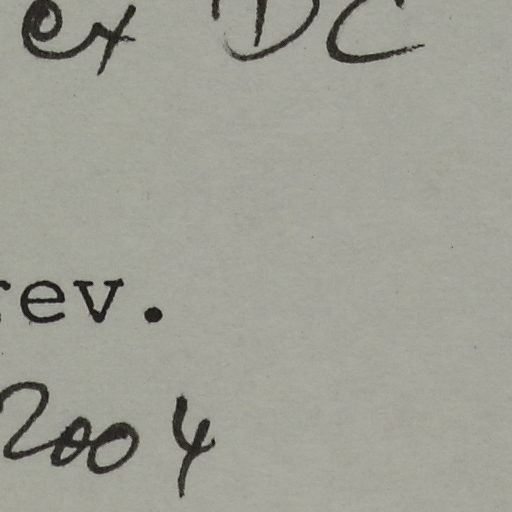 ex DC
rev.
2004